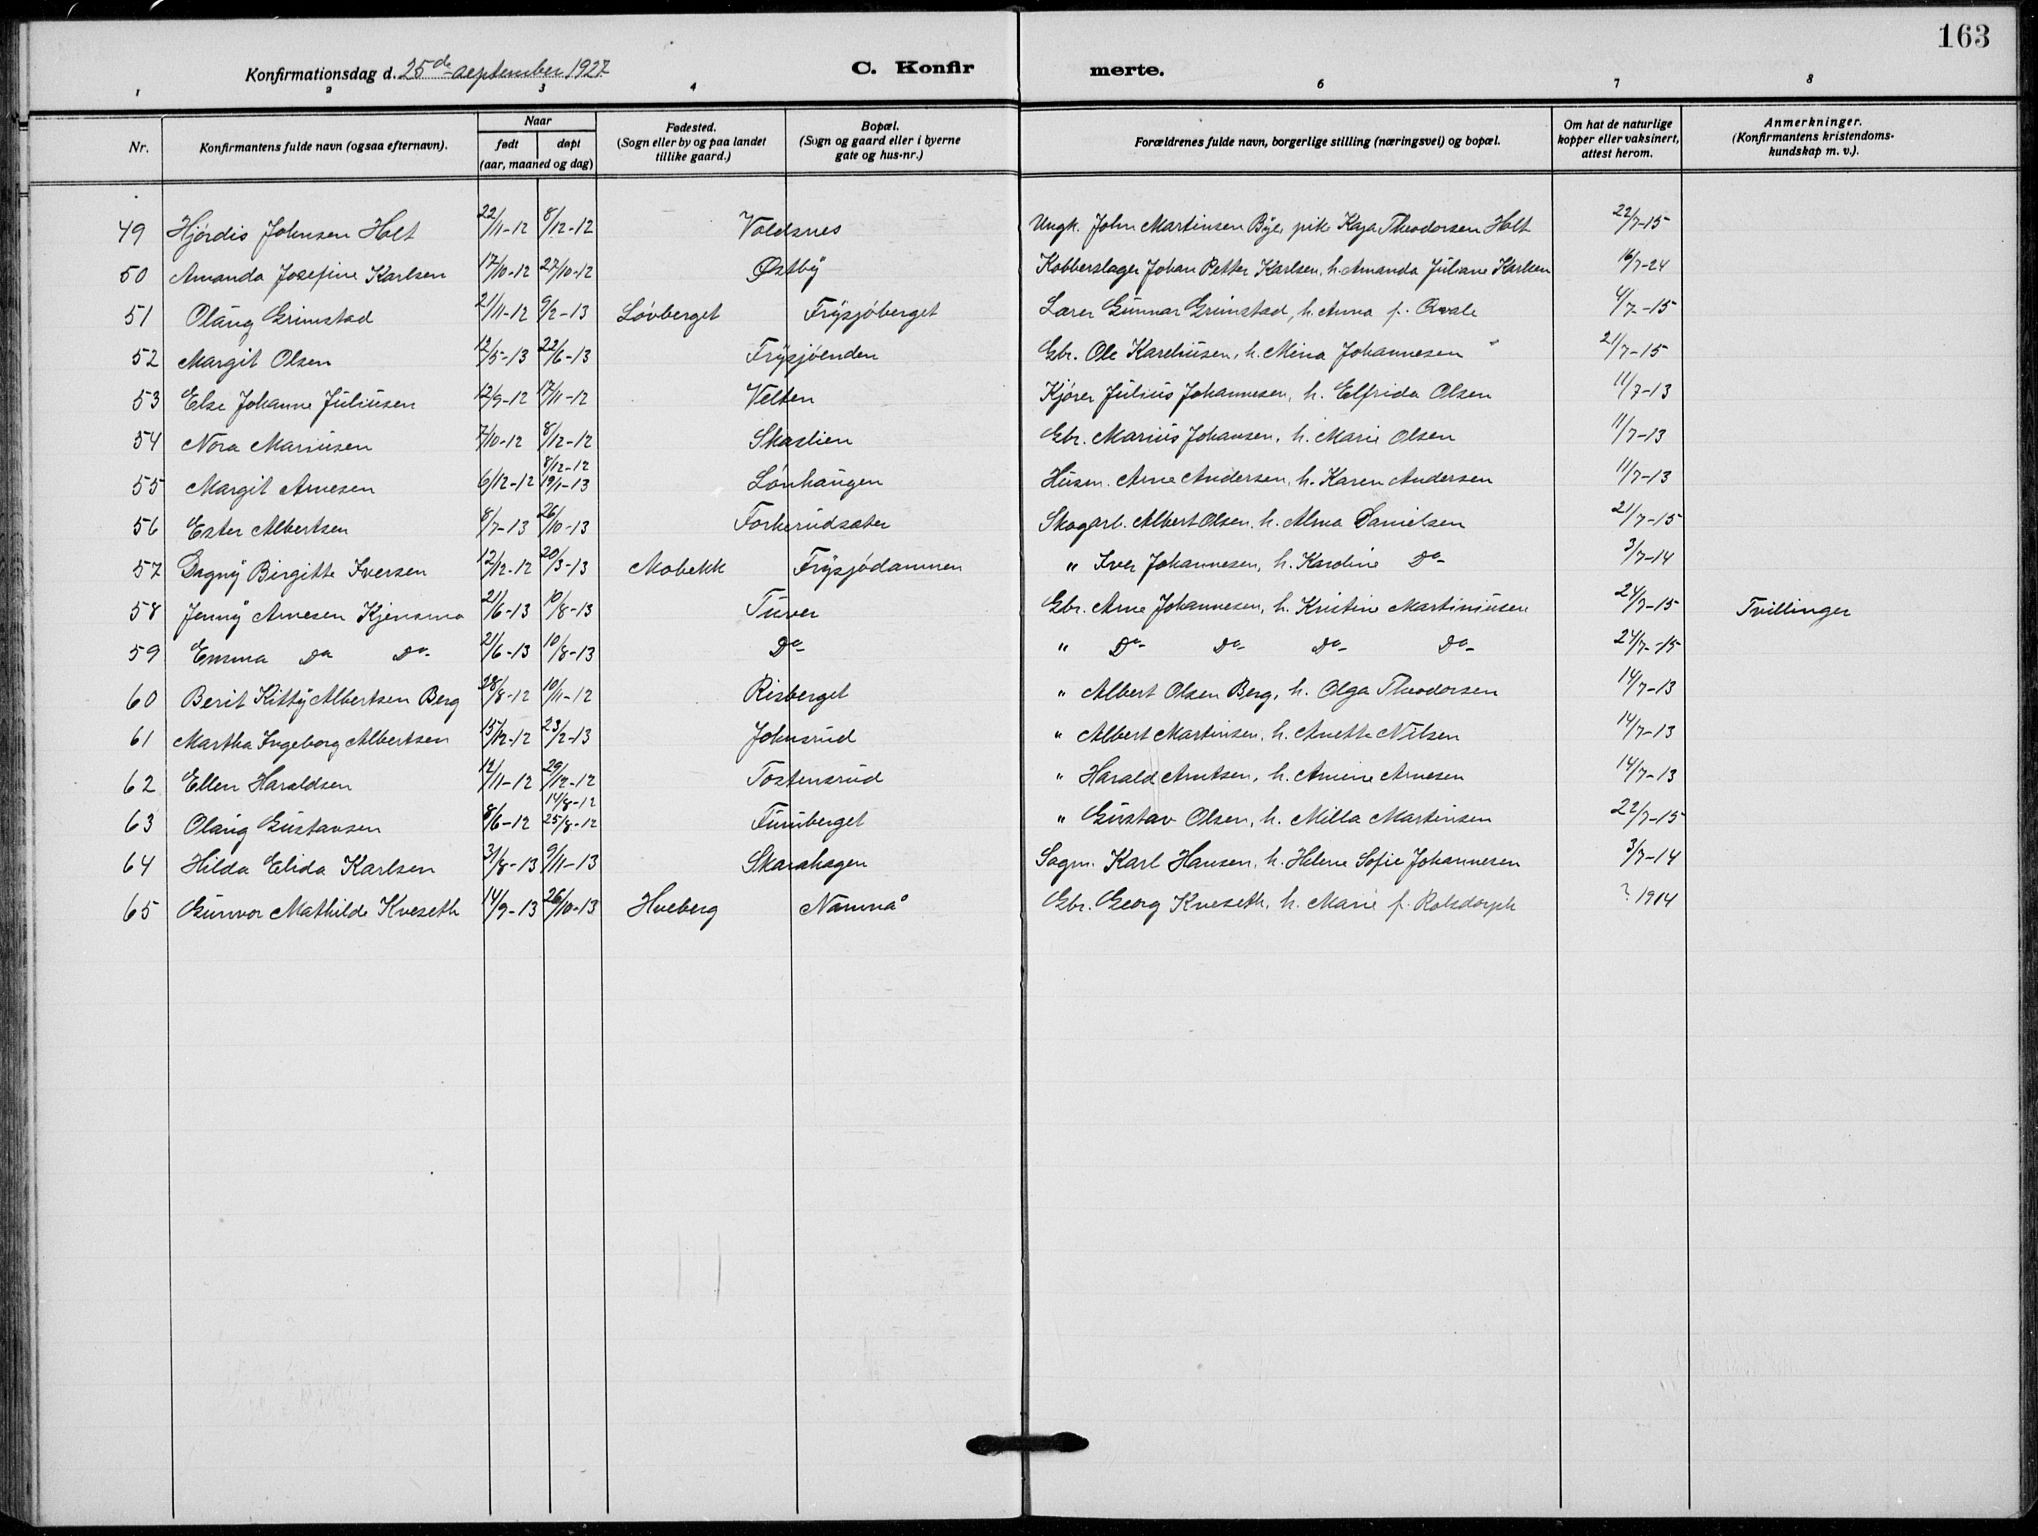 163
Konfirmationsdag d. 25de september 1927 C. Konfir merte.
1 2 3 4 6 7 8
Nr. Konfirmantens fulde navn (ogsaa efternavn). Naar født døpt (aar, maaned og dag) Fødested. (Sogn eller by og paa landet tillike gaard.) Bopæl. (Sogn og gaard eller i byerne gate og hus-nr.) Forældrenes fulde navn, borgerlige stilling (næringsvei) og bopæl. Om hat de naturlige kopper eller vaksinert, attest herom. Anmerkninger. (Konfirmantens kristendomskundskap m. v.).
49 Hjørdis Johnsen Holt 22/11-12 8/12-12 Voldsnes Ungk. John Martinsen Bye, pike Kaja Theodorsen Holt 22/7-15
50 Amanda Josefine Karlsen 17/10-12 27/10-12 Østby Kobberslager Johan Petter Karlsen, h. Amanda Juliane Karlsen 16/7-24
51 Olaug Grimstad 21/11-12 9/2-13 Løvberget Frysjøberget Lærer Gunnar Grimstad, h. Anna f. 4/7-15
52 Margit Olsen 12/5-13 22/6-13 Frysjøenden Gbr. Ole Kareliusen, h. Mina Johannesen 21/7-15
53 Else Johanne Juliusen 12/9-12 17/11-12 Velten Kjører Julius Johannesen, h. Elfrida Olsen 11/7-13
54 Nora Mariusen 7/10-12 8/12-12 Skaslien Gbr. Marius Johansen, h. Marie Olsen 11/7-13
55 Margit Arnesen 6/12-12 8/12-12 19/1-13 Lønhaugen Husm. Arne Andersen, h. Karen Andersen 11/7-13
56 Ester Albertsen 8/7-13 26/10-13 Forkerudsæter Skogarb. Albert Olsen, h. Alma Danielsen 21/7-15
57 Dagny Birgitte Iversen 12/12-12 20/3-13 Mobekk Frysjødammen " Iver Johannesen, h. Karoline Do- 3/7-14
58 Jenny Arnesen Kjensmo 21/6-13 10/8-13 Turer Gbr. Arne Johannesen, h. Kristine Martiniusen 24/7-15 Tvillinger
59 Emma Do Do- 21/6-13 10/8-13 Do- " Do- Do- Do- Do- 24/7-15
60 Berit Kitty Albertsen Berg 28/8-12 10/11-12 Risberget " Albert Olsen Berg, h. Olga Theodorsen 14/7-13
61 Martha Ingeborg Albertsen 15/12-12 23/2-13 Johnsrud " Albert Martinsen, h. Anette Nilsen 14/7-13
62 Ellen Haraldsen 12/11-12 29/12-12 Tostensrud " Harald Arntsen, h. Amine Arnesen 14/7-13
63 Olaug Gustavsen 8/6-12 14/8-12 25/8-12 Furuberget " Gustav Olsen, h. Milla Martinsen 22/7-15
64 Hilda Elida Karlsen 31/8-13 9/11-13 Skarahagen Sagm. Karl Hansen, h. Helene Sofie Johannesen 3/7-14
65 Gunvor Mathilde Kveseth 14/9-13 26/10-13 Hveberg Namnå Gbr. Georg Kveseth, h. Marie f. Rolsdorph ? 1914